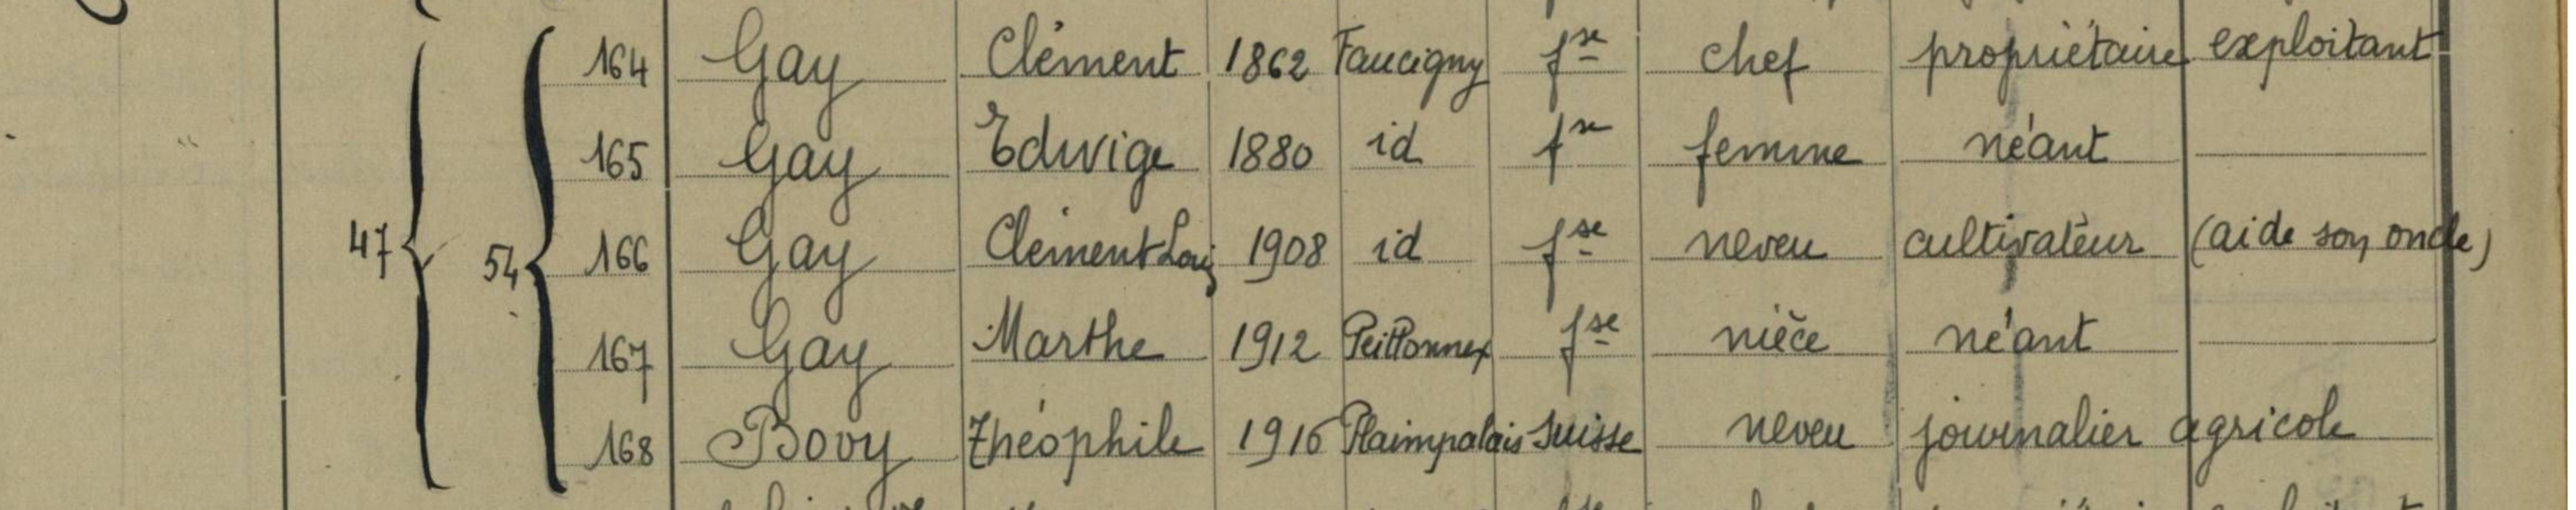 164 Gay Clément 1862 Faucigny fse chef propriétaire exploitant
165 Gay Edwige 1880 id fse femme néant
47 54 166 Gay Clément Louis 1908 id fse neveu cultivateur (aide son oncle)
167 Gay Marthe 1912 Peillonnex fse nièce néant
168 Bovy Théophile 1916 Plaimpalais Suisse neveu journalier agricole